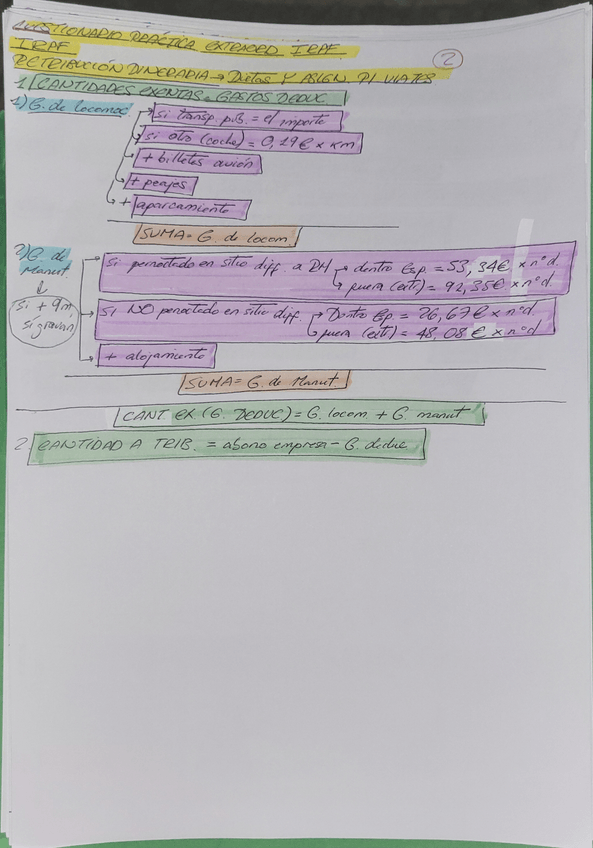 CUESTIONARIO PRÁCTICA EXTENDED IRPF
IRPF
②
RETRIBUCIÓN DINERARIA → Dietas Y ASIGN. P/ VIAJES
1. CANTIDADES EXENTAS = GASTOS DEDUC
1) G. de locomoc
si transp. púb. = el importe
si otro (coche) = 0,19€ x km
+ billetes avión
+ peajes
+ aparcamiento
SUMA = G. de locom.
2) G. de Manut
si + 9m, sí gravan
si pernoctado en sitio diff. a RH → dentro Esp. = 53,34€ x nº d.
→ fuera (extr) = 92,35€ x nº d
si NO pernoctado en sitio diff. → Dentro Esp = 26,67€ x nº d.
→ fuera (extr) = 48,08€ x nº d
+ alojamiento
SUMA = G. de Manut.
CANT EX (G. DEDUC) = G. locom + G. manut
2. CANTIDAD A TRIB. = abono empresa - G. deduc.